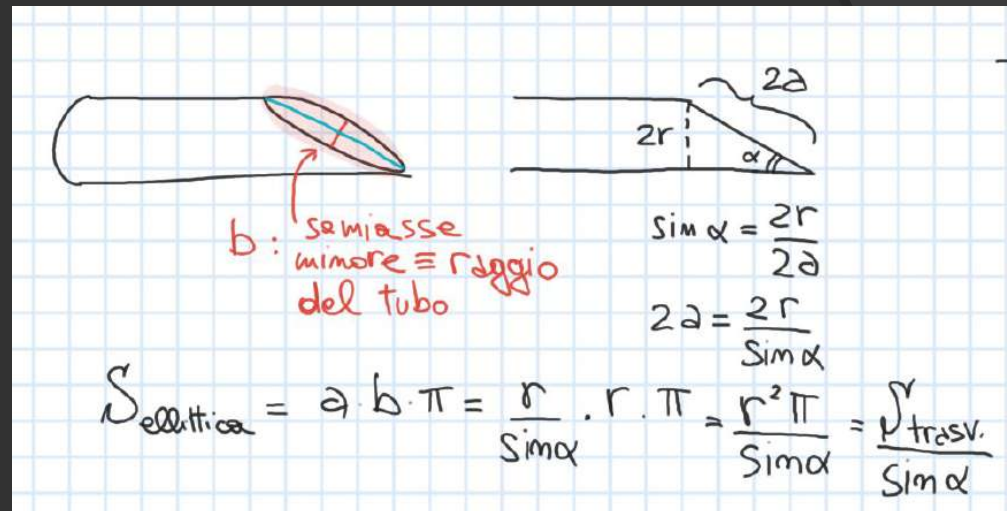 2a
2r
α
b: semiasse
minore ≡ raggio
del tubo
sin α = 2r / 2a
2a = 2r / sin α
S ellittica = a · b · π = r / sin α · r · π = r² π / sin α = S trasv. / sin α